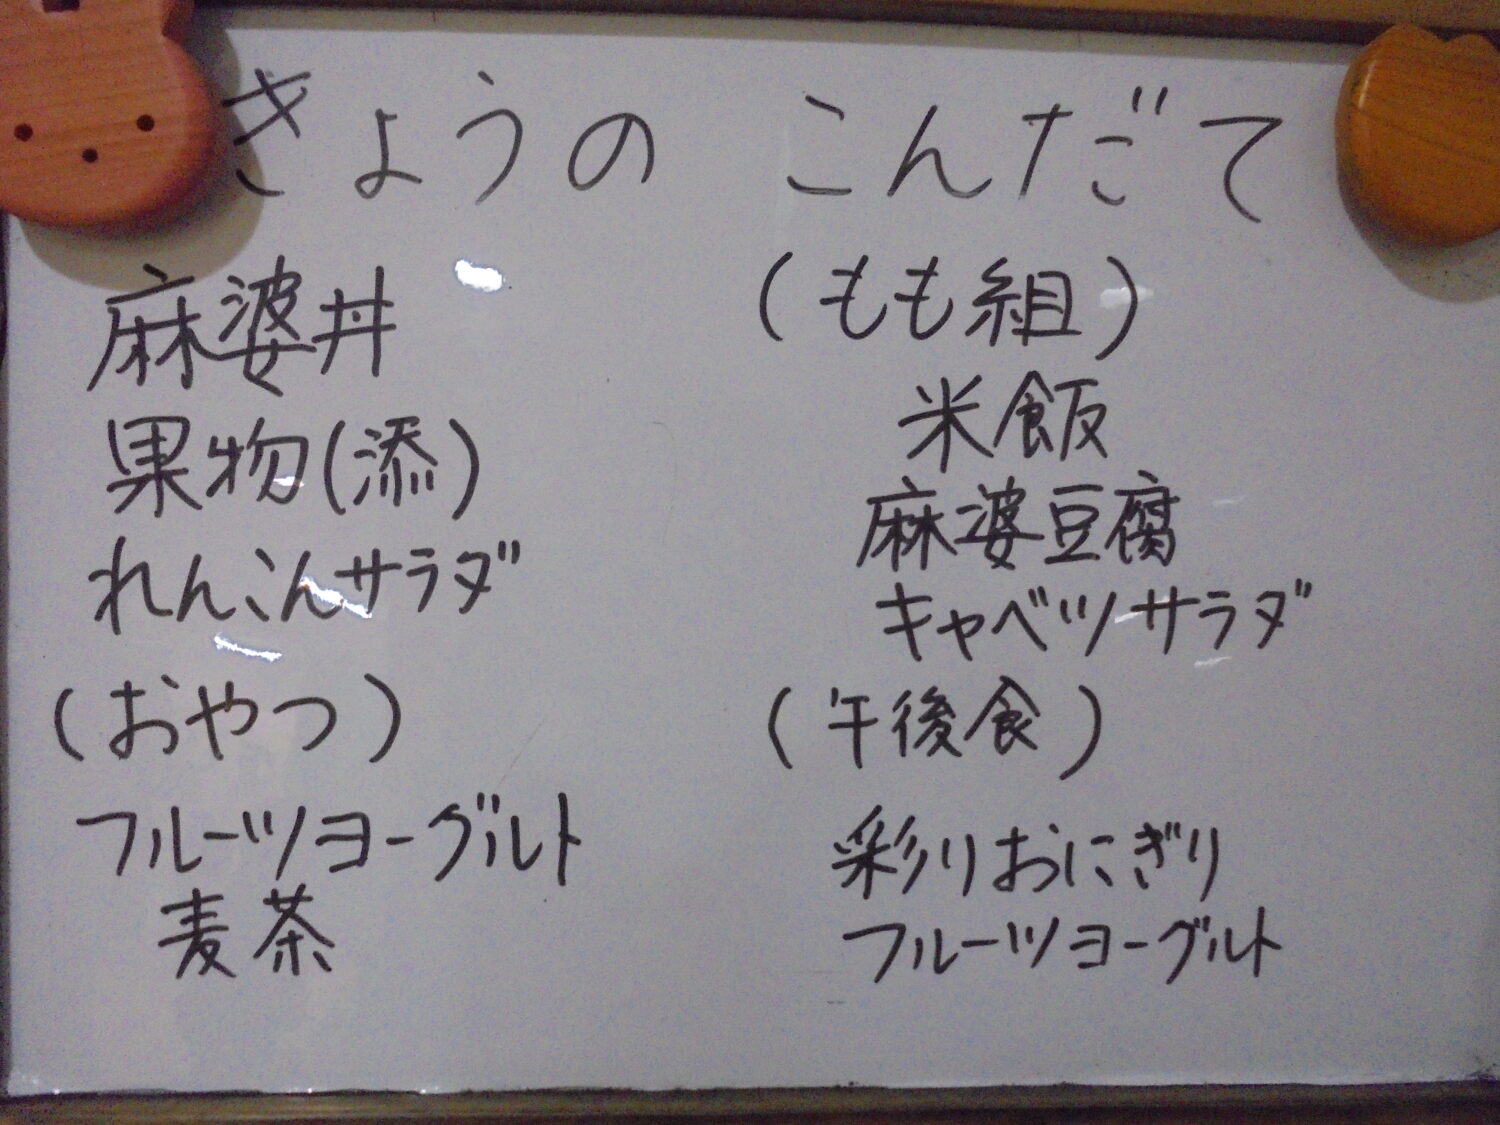 きょうの こんだて
麻婆丼
果物(添)
れんこんサラダ
(おやつ)
フルーツヨーグルト
麦茶
(もも組)
米飯
麻婆豆腐
キャベツサラダ
(午後食)
彩りおにぎり
フルーツヨーグルト